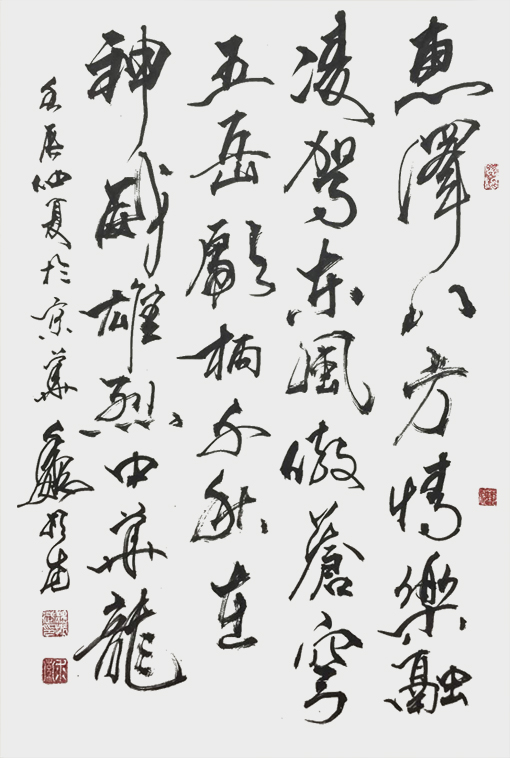 惠澤八方情樂融
凌駕東風傲蒼穹
五岳
神威雄烈中華龍
壬辰仲夏於京華